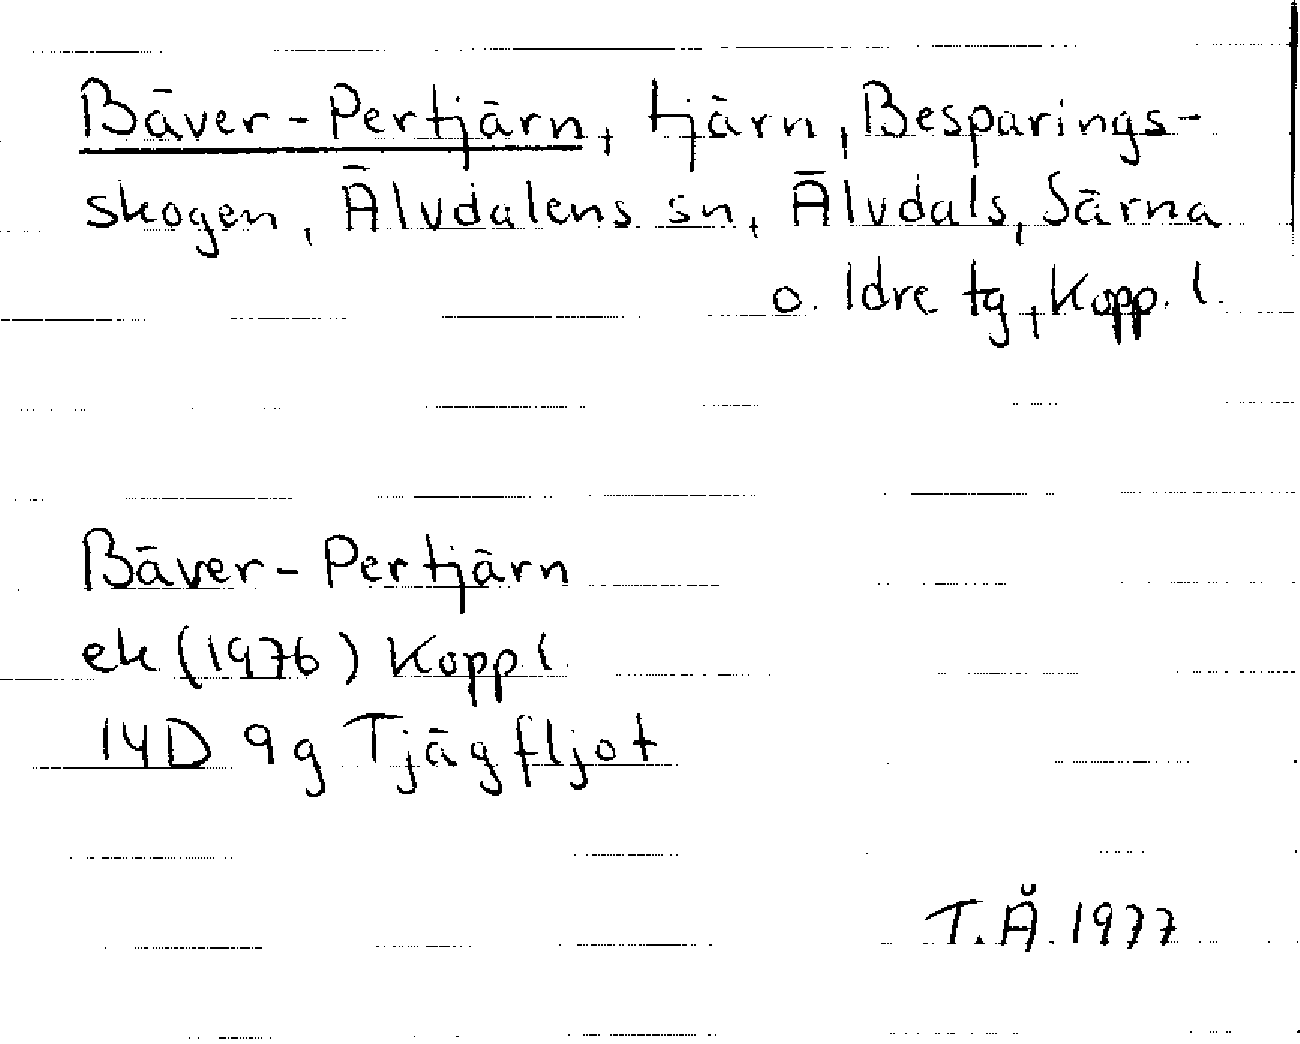 Bäver-Pertjärn, tjärn, Besparings-
skogen, Älvdalens sn, Älvdals, Särna
o. Idre tg, Kopp. l.
Bäver-Pertjärn
ek (1976) Kopp l.
14D 9g Tjägfljot
T.Å. 1977